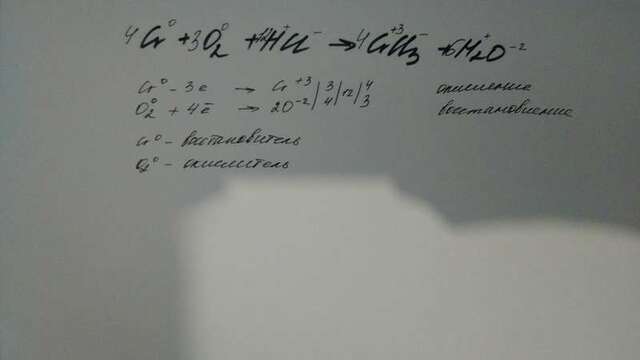 4Cr⁰ + 3O₂⁰ + 12H⁺Cl⁻ → 4Cr⁺³Cl₃⁻ + 6H₂⁺O⁻²
Cr⁰ - 3ē → Cr⁺³ | 3 | 12 | 4 окисление
O₂⁰ + 4ē → 2O⁻² | 4 | | 3 восстановление
Cr⁰ - восстановитель
O₂⁰ - окислитель